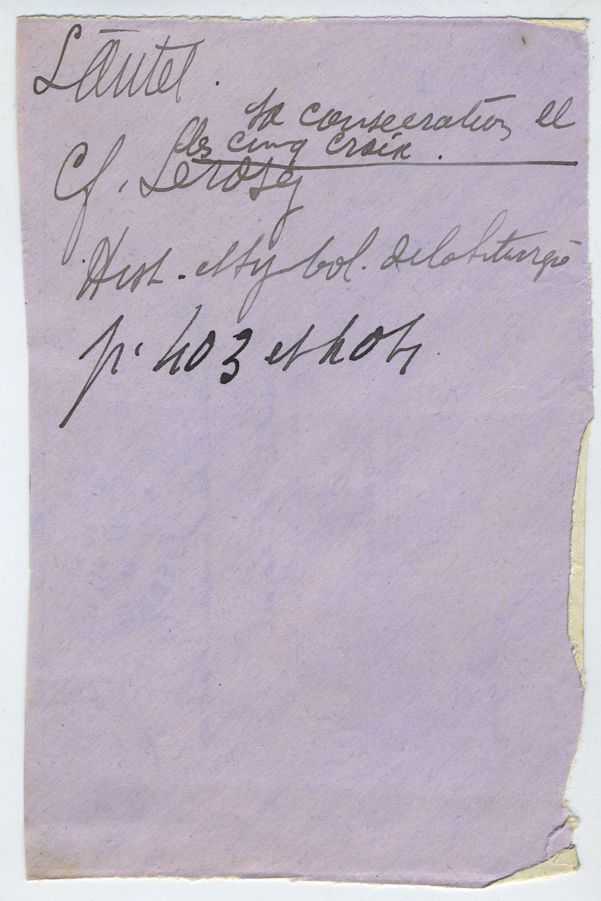 L'autel.
sa consecration et
les cinq croix.
Cf. Lerosey
Hist. et Symbol. de la Liturgie
p. 403 et 404